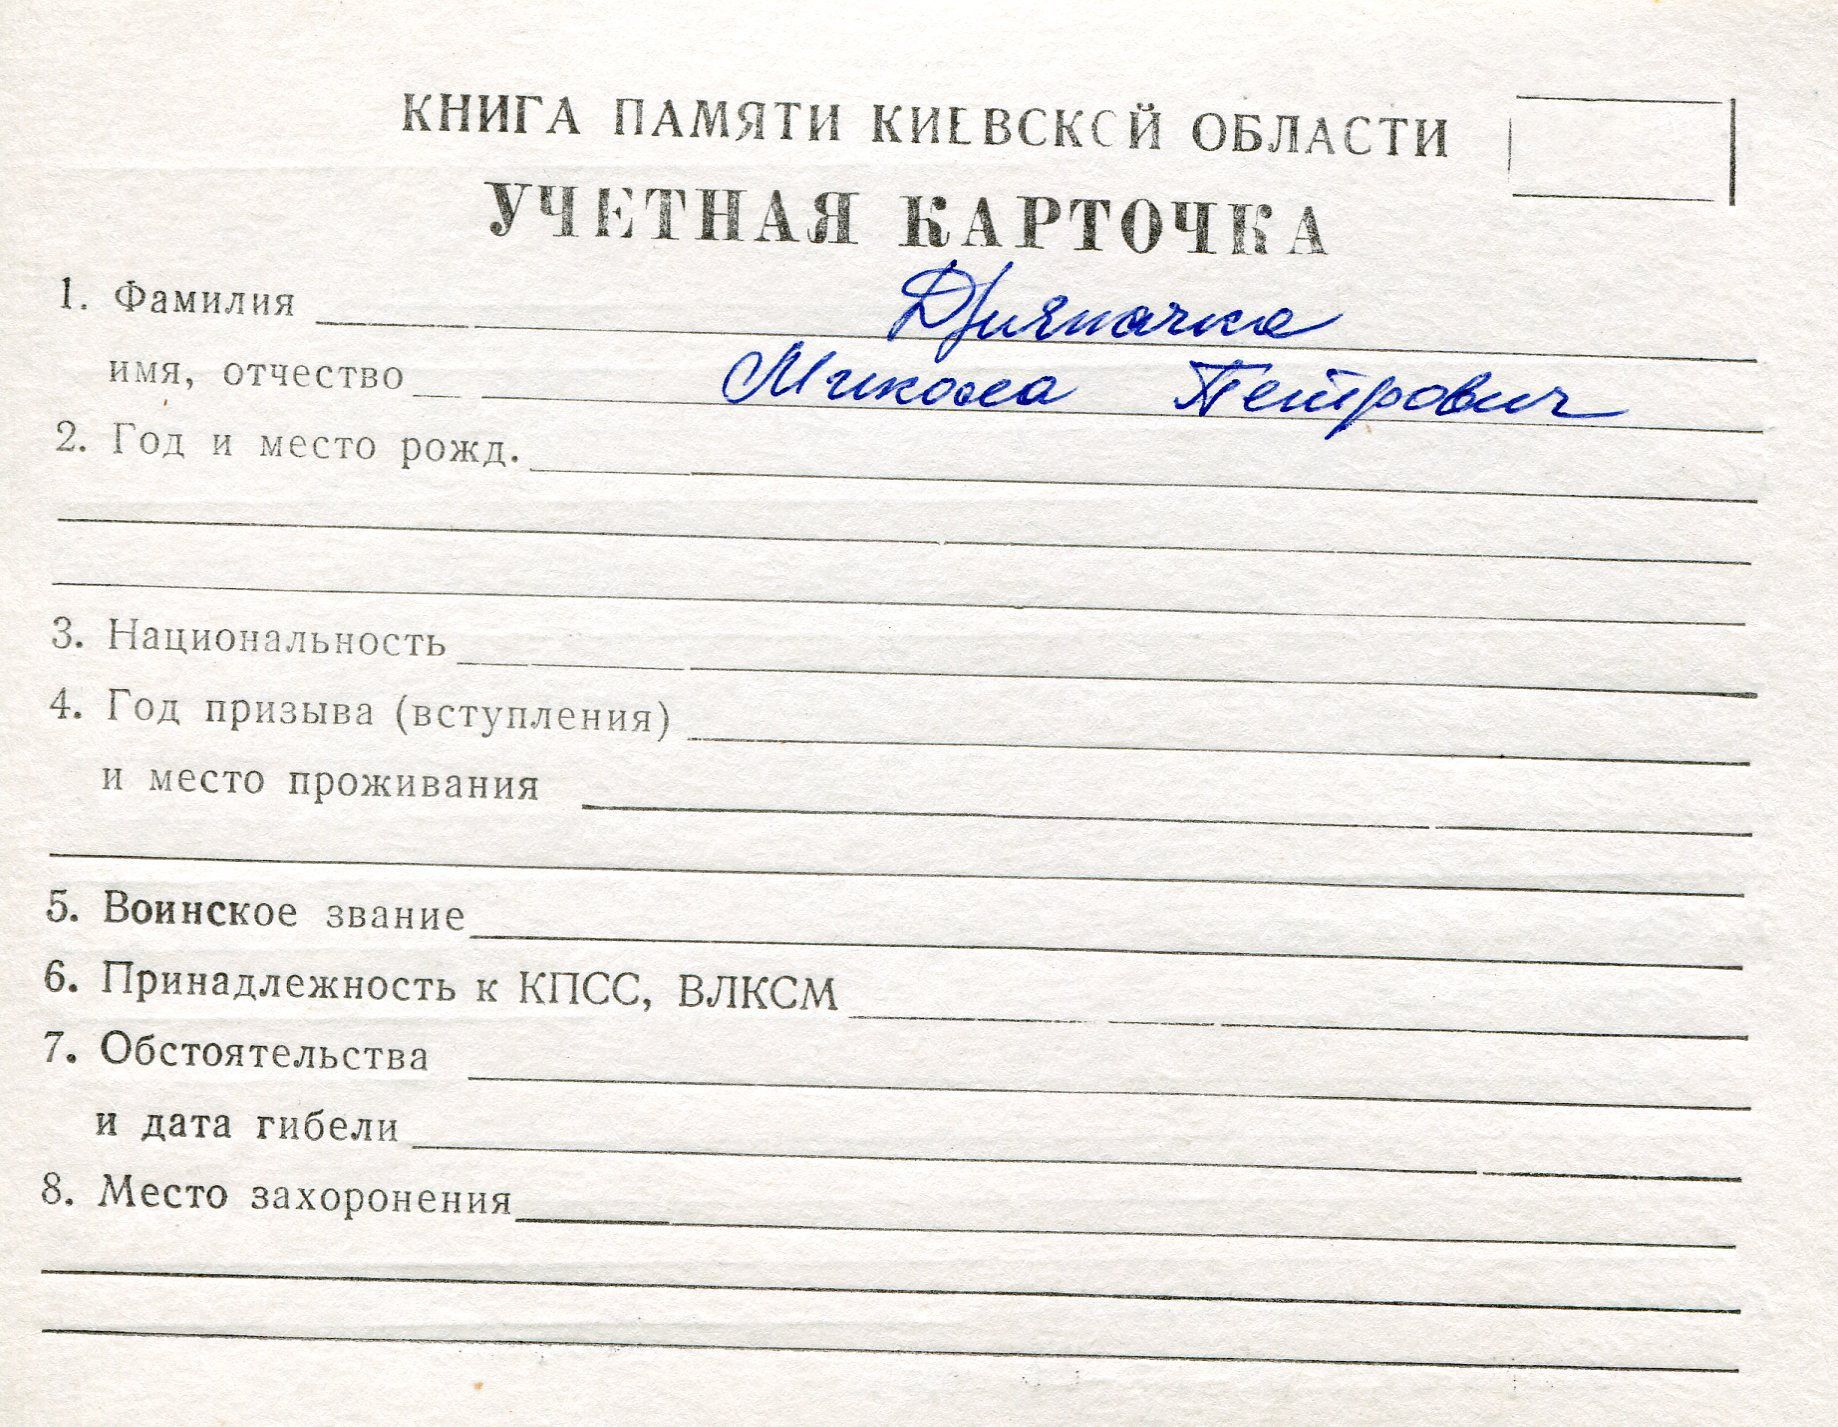 КНИГА ПАМЯТИ КИЕВСКОЙ ОБЛАСТИ
УЧЕТНАЯ КАРТОЧКА
1. Фамилия
имя, отчество Микола Петрович
2. Год и место рожд.
3. Национальность
4. Год призыва (вступления)
и место проживания
5. Воинское звание
6. Принадлежность к КПСС, ВЛКСМ
7. Обстоятельства
и дата гибели
8. Место захоронения